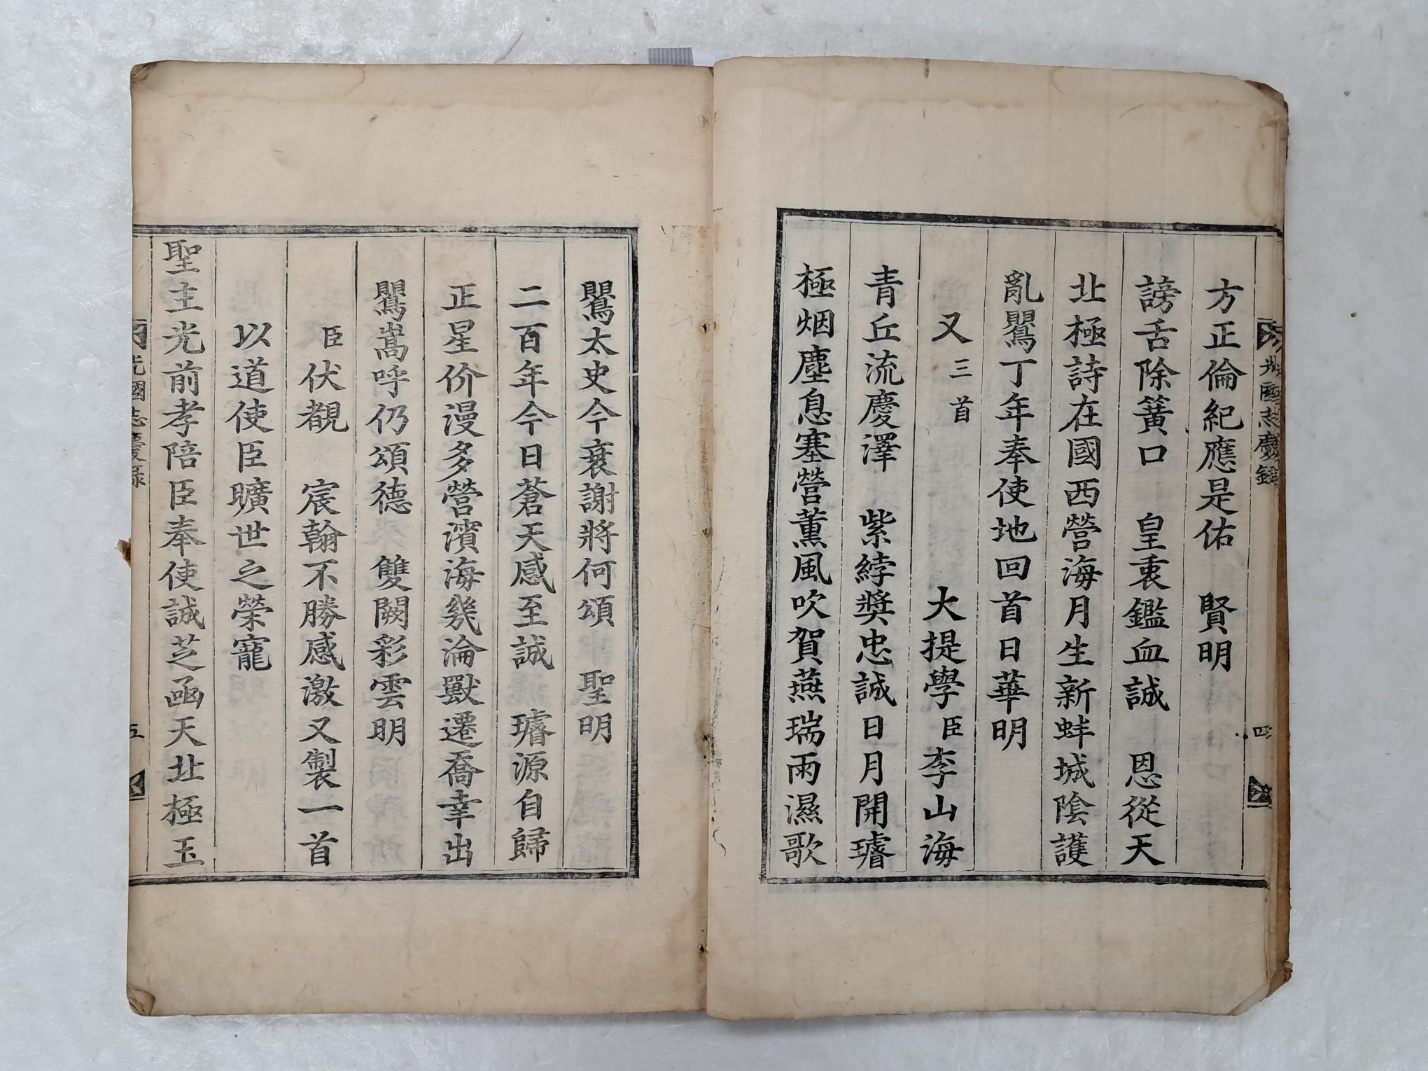 方正倫紀應是佑 賢明
謗舌除簧口 皇衷鑑血誠 恩從天
北極詩在國西營海月生新蚌城陰護
亂鸎丁年奉使地回首日華明
又三首 大提學臣李山海
青丘流慶澤 紫綍奬忠誠日月開璿
極烟塵息塞營薰風吹賀燕瑞雨濕歌
鸎太史今衰謝將何頌 聖明
二百年今日蒼天感至誠 璿源自歸
正星价漫多營濱海幾淪獸遷喬幸出
鸎嵩呼仍頌德 雙闕彩雲明
臣伏覩 宸翰不勝感激又製一首
以道使臣曠世之榮寵
聖主光前孝陪臣奉使誠芝函天北極玉
光國志慶錄
四
光國志慶錄
五